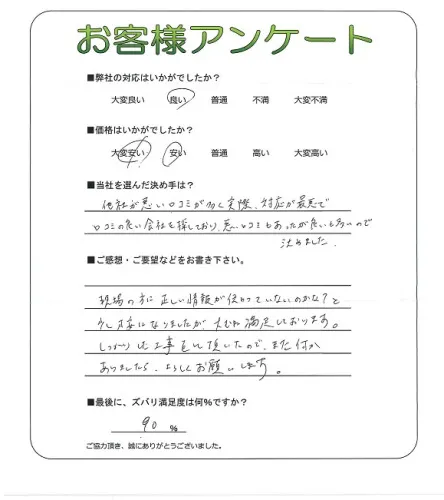 お客様アンケート
■弊社の対応はいかがでしたか？
大変良い 良い 普通 不満 大変不満
■価格はいかがでしたか？
大変安い 安い 普通 高い 大変高い
■当社を選んだ決め手は？
他社が悪い口コミが多く実際、対応が最悪で
口コミの良い会社を探しており、悪い口コミもあったが良いも多いので
決めました。
■ご感想・ご要望などをお書き下さい。
現場の方に正しい情報が伝わっていないのかな？と
少し不安になりましたが、大むね満足しております。
しっかりした工事をして頂いたので、また何か
ありましたら、よろしくお願いします。
■最後に、ズバリ満足度は何%ですか？
90 %
ご協力頂き、誠にありがとうございました。